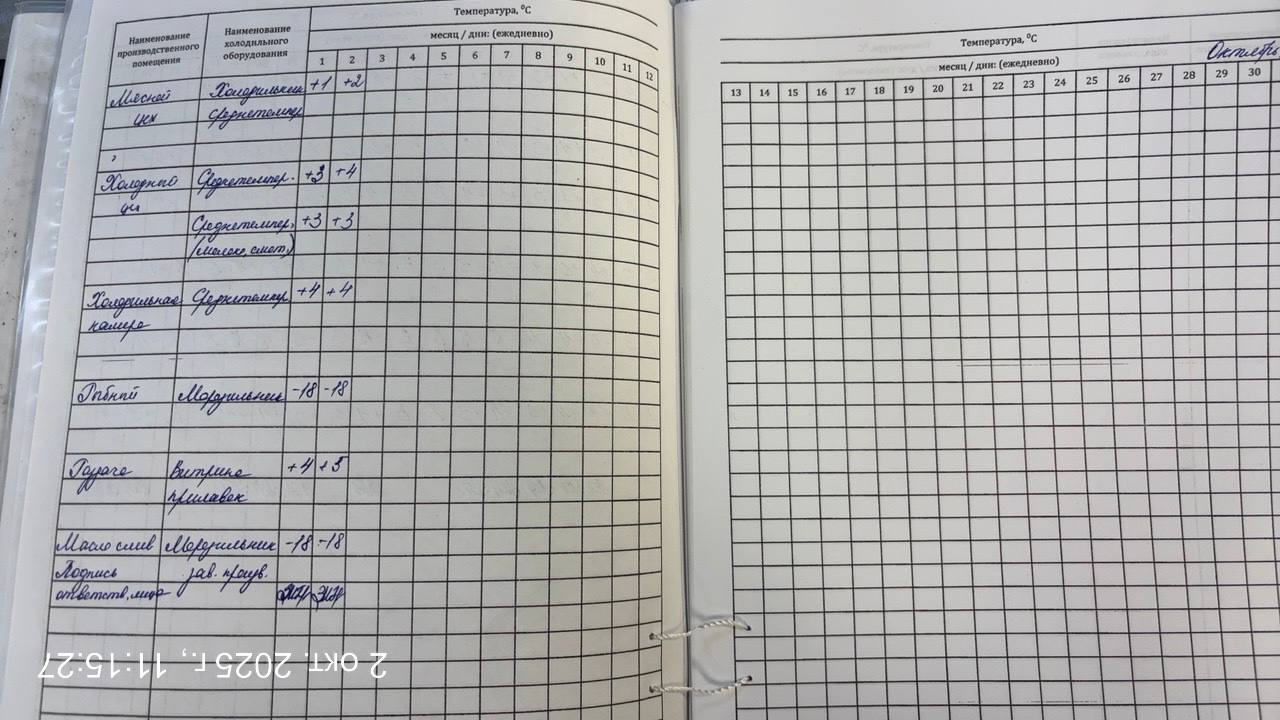 Температура, ⁰С
Наименование производственного помещения
Наименование холодильного оборудования
месяц / дни: (ежедневно)
1 2 3 4 5 6 7 8 9 10 11 12
Мясной Холодильник +1 +2
цех Среднетемпер
Холодный Среднетемпер. +3 +4
цех
Среднетемпер. +3 +3
(молоко, смет.)
Холодильная Среднетемпер +4 +4
камера
Рыбный Морозильник -18 -18
Раздача Витрина +4 +3
прилавок
Масло слив Морозильник -18 -18
Подпись зав. произв.
ответств. лица
Температура, ⁰С
Октябрь
месяц / дни: (ежедневно)
13 14 15 16 17 18 19 20 21 22 23 24 25 26 27 28 29 30
2 окт. 2025 г., 11:15:27